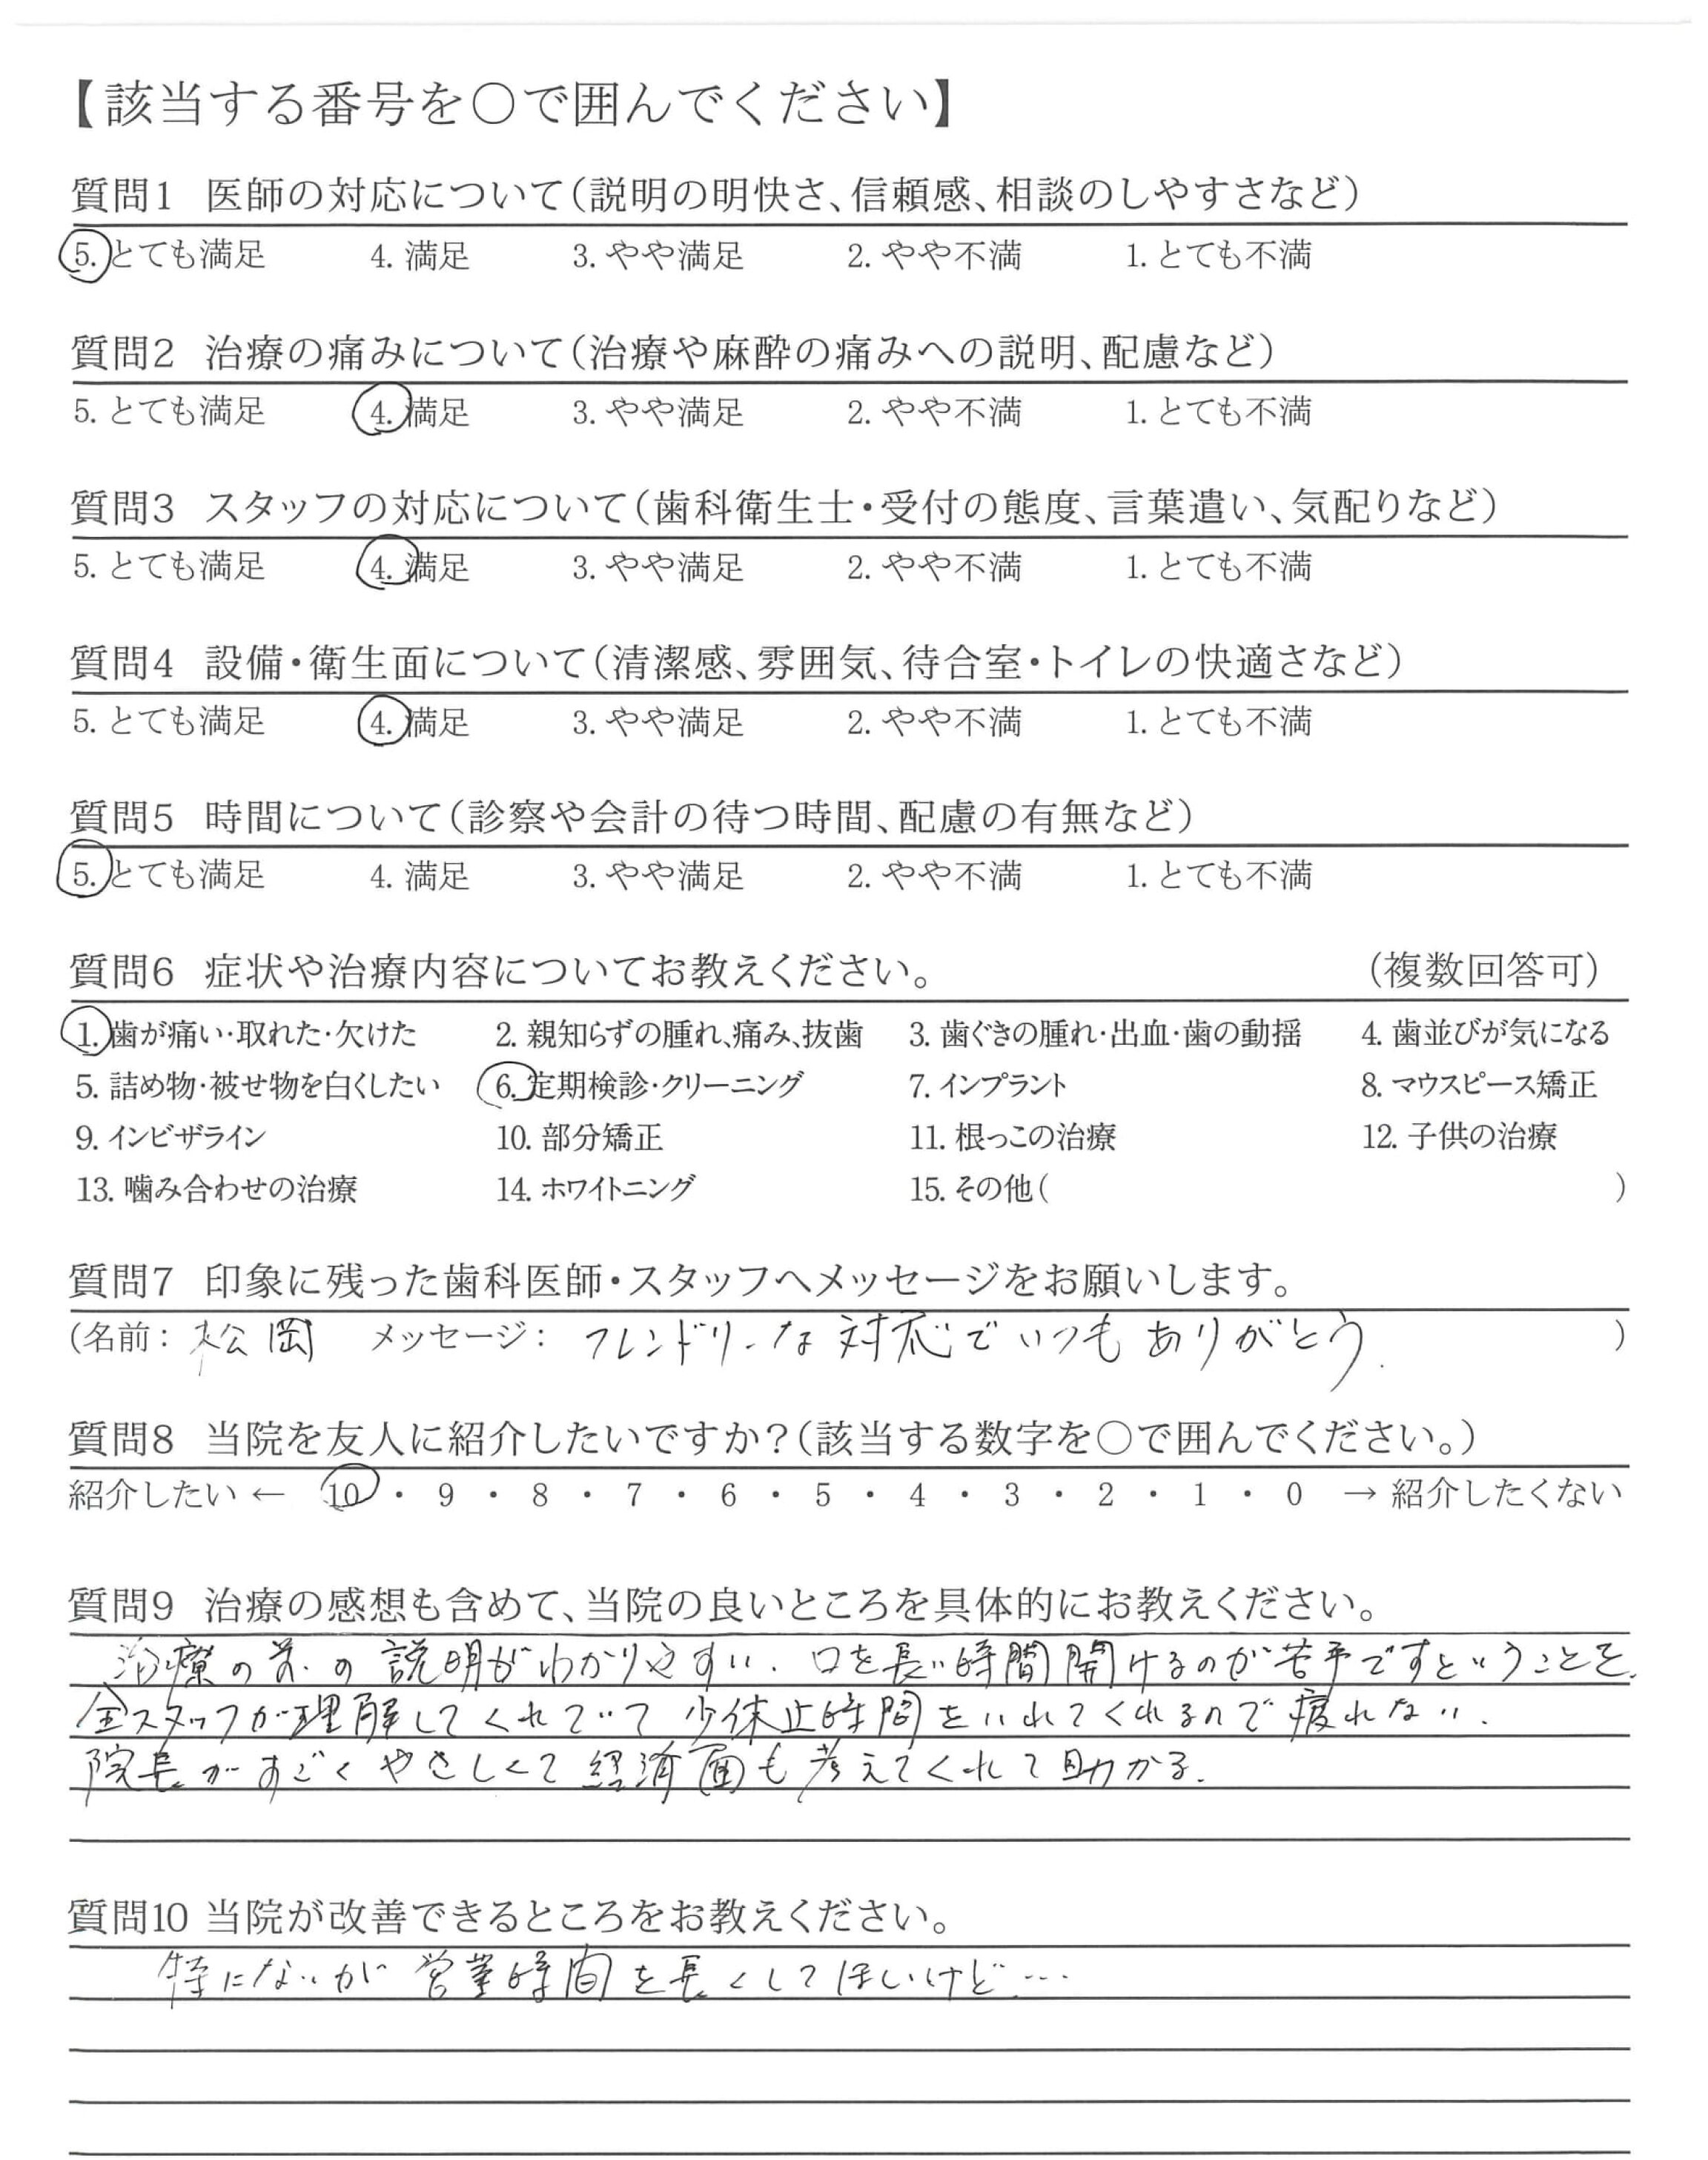 【該当する番号を○で囲んでください】
質問1 医師の対応について(説明の明快さ、信頼感、相談のしやすさなど)
5. とても満足 4. 満足 3. やや満足 2. やや不満 1. とても不満
質問2 治療の痛みについて(治療や麻酔の痛みへの説明、配慮など)
5. とても満足 4. 満足 3. やや満足 2. やや不満 1. とても不満
質問3 スタッフの対応について(歯科衛生士・受付の態度、言葉遣い、気配りなど)
5. とても満足 4. 満足 3. やや満足 2. やや不満 1. とても不満
質問4 設備・衛生面について(清潔感、雰囲気、待合室・トイレの快適さなど)
5. とても満足 4. 満足 3. やや満足 2. やや不満 1. とても不満
質問5 時間について(診察や会計の待つ時間、配慮の有無など)
5. とても満足 4. 満足 3. やや満足 2. やや不満 1. とても不満
質問6 症状や治療内容についてお教えください。 (複数回答可)
1. 歯が痛い・取れた・欠けた 2. 親知らずの腫れ、痛み、抜歯 3. 歯ぐきの腫れ・出血・歯の動揺 4. 歯並びが気になる
5. 詰め物・被せ物を白くしたい 6. 定期検診・クリーニング 7. インプラント 8. マウスピース矯正
9. インビザライン 10. 部分矯正 11. 根っこの治療 12. 子供の治療
13. 噛み合わせの治療 14. ホワイトニング 15. その他( )
質問7 印象に残った歯科医師・スタッフへメッセージをお願いします。
(名前: 松岡 メッセージ: フレンドリーな対応でいつもありがとう. )
質問8 当院を友人に紹介したいですか?(該当する数字を○で囲んでください。)
紹介したい ← 10 ・ 9 ・ 8 ・ 7 ・ 6 ・ 5 ・ 4 ・ 3 ・ 2 ・ 1 ・ 0 → 紹介したくない
質問9 治療の感想も含めて、当院の良いところを具体的にお教えください。
治療の前の説明がわかりやすい. 口を長い時間開けるのが苦手ですということを、
全スタッフが理解してくれていて 少休止時間をいれてくれるので疲れない.
院長がすごくやさしくて経済面も考えてくれて助かる.
質問10 当院が改善できるところをお教えください。
特にないが 営業時間を長くしてほしいけど…